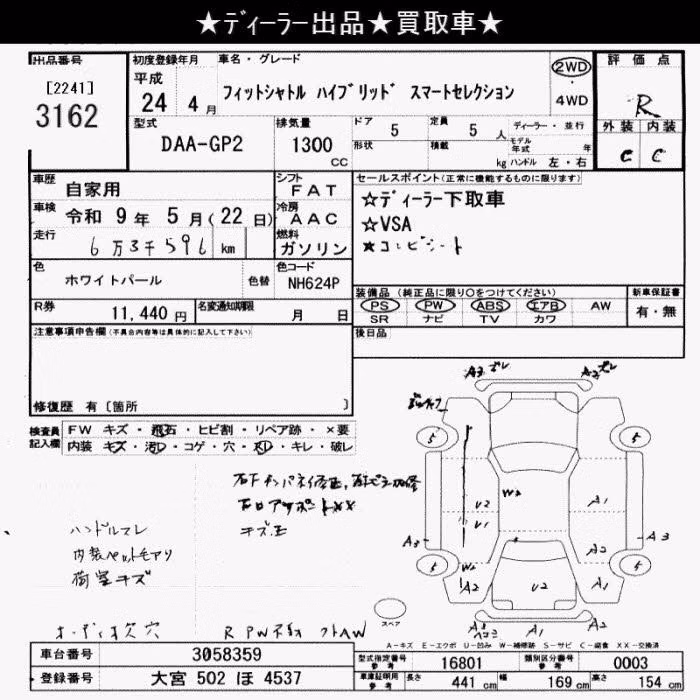 ★ディーラー出品★買取車★
出品番号
[2241]
3162
初度登録年月
平成
24 4月
車名・グレード
フィットシャトル ハイブリッド スマートセレクション
2WD
4WD
評価点
R
外装 内装
C C
型式
DAA-GP2
排気量
1300 CC
ドア 5
定員 5人
形状
積載 kg
ディーラー・並行
モデル年式 年
ハンドル 左・右
車歴 自家用
車検 令和 9年 5月(22日)
走行 6万3千596 km
シフト FAT
冷房 AAC
燃料 ガソリン
セールスポイント(正常に機能するものに限ります)
☆ディーラー下取車
☆VSA
★コンビシート
色 ホワイトパール
色替
色コード NH624P
R券 11,440円
名変通知期限 月 日
装備品(純正品に限り○をつけてください)
PS PW ABS エアB AW
SR ナビ TV カワ
新車保証書
有・無
後日品
注意事項申告欄(不具合内容等は具体的に記入して下さい)
修復歴 有[箇所 ]
検査員記入欄
FW キズ・飛石・ヒビ割・リペア跡・×要
内装 キズ・汚レ・コゲ・穴・スレ・キレ・破レ
ハンドルスレ
内装ペットモアリ
荷室キズ
キズ.E
オーディオ欠穴
A3 A3
5 5
W2
U2
U1
A1
A2
A3 A3
5 5
W2
A2 U2 A1
A2 A1 A2
スペア
A-キズ E-エクボ U-凹み W-補修跡 S-サビ C-腐食 XX-交換済
車台番号 3058359
登録番号 大宮 502 ほ 4537
型式指定番号 参考 16801
類別区分番号 参考 0003
車庫証明用 参考 長さ 441cm 幅 169cm 高さ 154cm